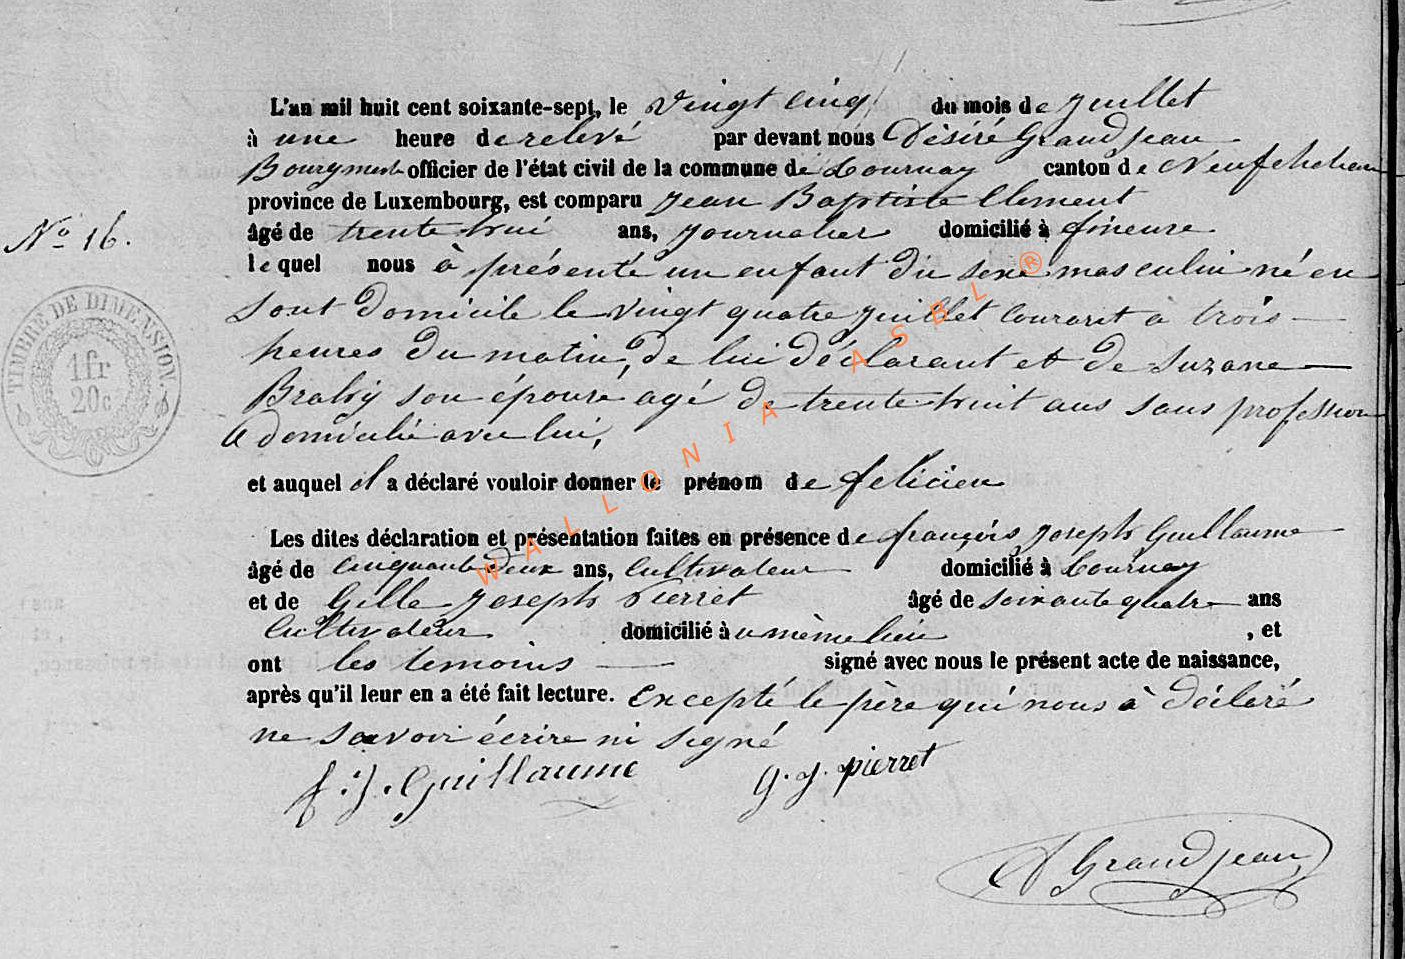 L'an mil huit cent soixante-sept, le vingt cinq du mois de juillet
à une heure de relevé par devant nous Désiré Grandjean
Bourgmestre officier de l'état civil de la commune de Tournay canton de Neufchateau
province de Luxembourg, est comparu Jean Baptiste Clement
âgé de trente huit ans, journalier domicilié à fineuse
N° 16.
le quel nous à présenté un enfant du sexe masculin né en
sont domicile le vingt quatre juillet courant à trois
heures du matin, de lui déclarant et de Suzane
son épouse agé de trente huit ans sans profession
domicilié avec lui,
TIMBRE DE DIMENSION.
1 fr
20c
et auquel il a déclaré vouloir donner le prénom de felicien
Les dites déclaration et présentation faites en présence de françois joseph Guillaume
âgé de cinquante deux ans, cultivateur domicilié à Tournay
et de Gille Joseph Pierret âgé de soixante quatre ans
cultivateur domicilié à u même lieu , et
ont les temoins signé avec nous le présent acte de naissance,
après qu'il leur en a été fait lecture. excepté le père qui nous à déclaré
ne savoir écrire ni signé
f. j. Guillaume g. j. pierret
D Grandjean
WALLONIA ASBL ®